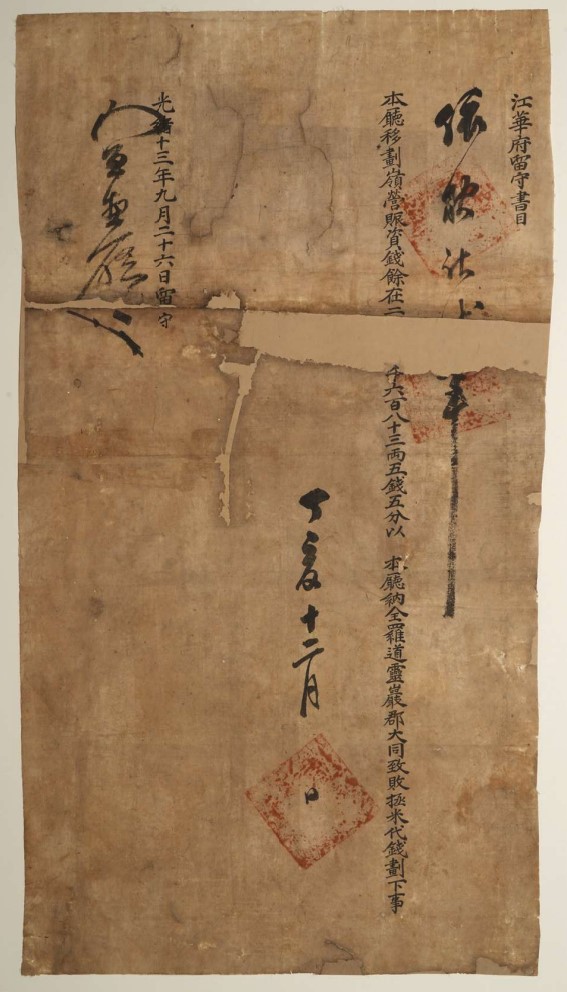 江華府留守書目
依
本廳移劃嶺營賑資錢餘在二千六百八十三兩五錢五分以 本廳納全羅道靈巖郡大同致敗拯米代錢劃下事
丁亥十二月 日
光緖十三年九月二十六日留守